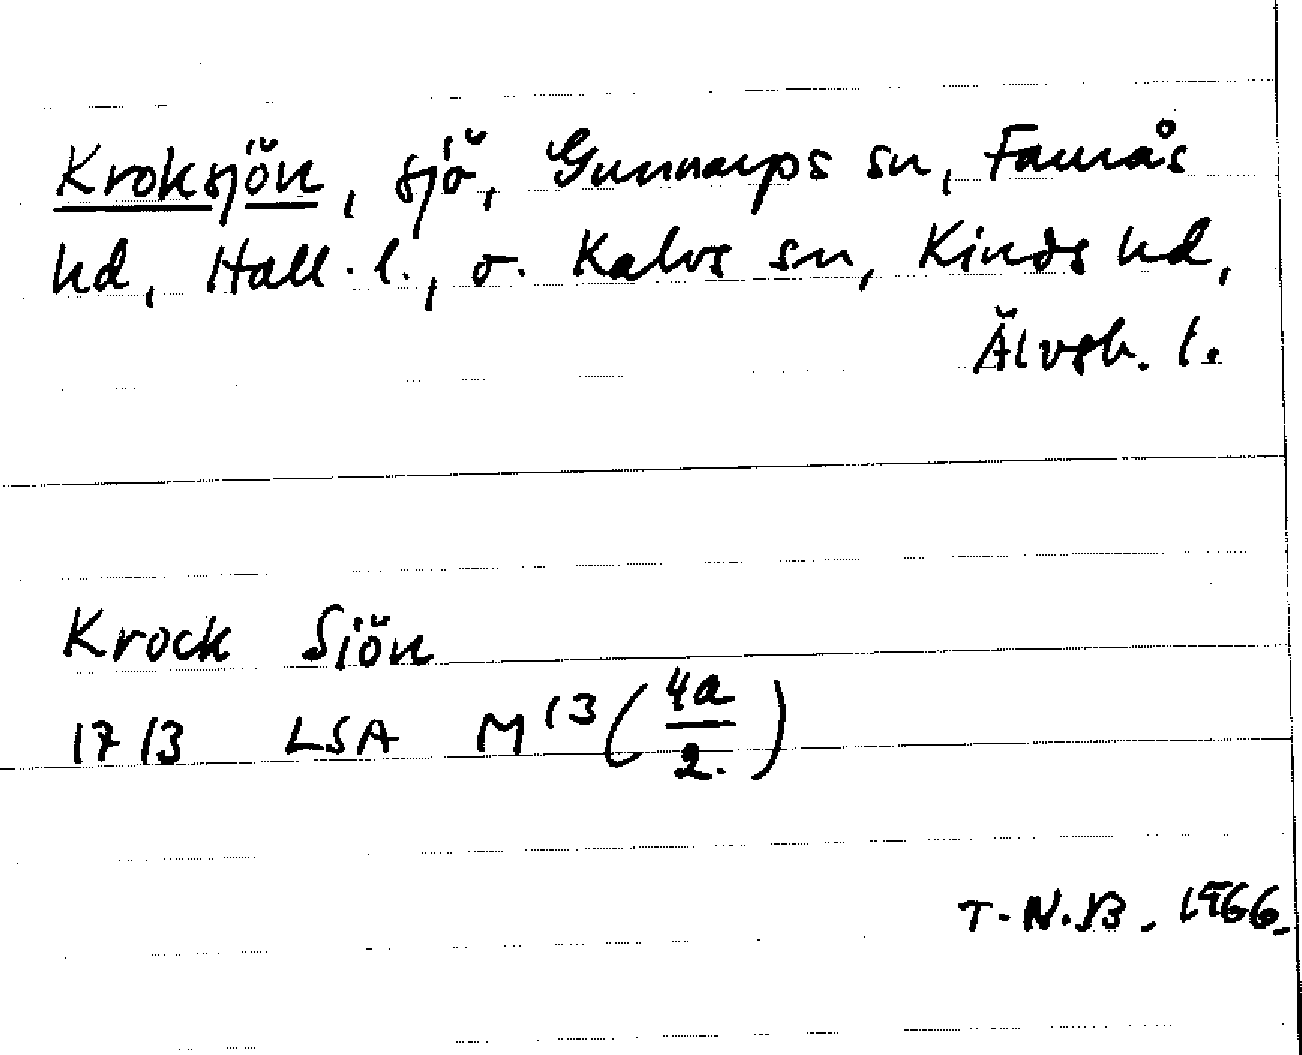 Kroksjön, sjö, Gunnarps sn, Faurås
hd, Hall. l., o. Kalvs sn, Kinds hd,
Älvsb. l.
Krock Siön
1713 LSA M13 (4a/2.)
T.N.B. 1966.